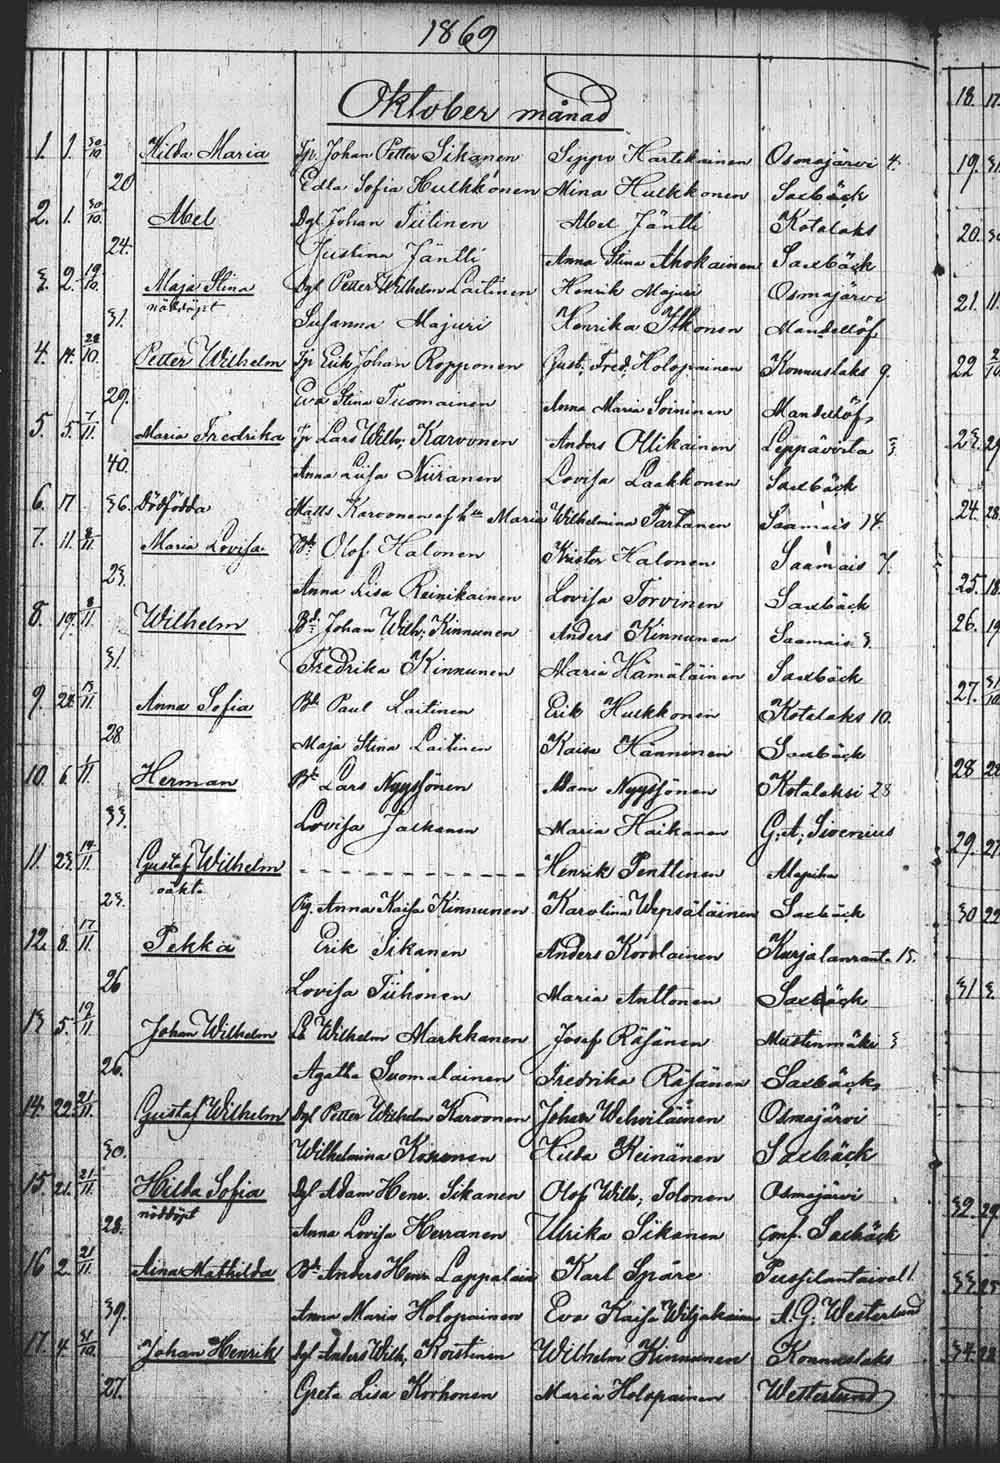 1869
Oktober månad
1. 1. 30/10. Hilda Maria Tp. Johan Petter Sikanen Seppo Hartikainen Osmajärvi 4.
20 Edla Sofia Hulkkonen Mina Hulkkonen Saxbäck
2. 1. 30/10. Abel Dgl Johan Tiitinen Abel Jäntti Kotalaks
24. Justina Jäntti Anna Stina Ahokainen Saxbäck
3. 2. 10. Maja Stina Dgl Petter Wilhelm Laitinen Henrik Majuri Osmajärvi
nöddöpt
31. Susanna Majuri Henrika Itkonen Mandellöf
4. 14. 10. Petter Wilhelm Tp Erik Johan Ropponen Gust. Fred. Holopainen Konnuslaks 9.
29. Eva Stina Tuomainen Anna Maria Soininen Mandellöf
5. 5. 7/11. Maria Fredrika Tp Lars Wilh. Karvonen Anders Ollikainen Leppävirta 3.
40. Anna Luisa Niiranen Lovisa Laakkonen Saxbäck
6. 17 36. Dödfödda Matts Karvonen af h Maria Wilhelmina Partanen Saamais 14.
7. 11. 8/11 Maria Lovisa Bd Olof Halonen Krister Halonen Saamais 7.
23. Anna Lisa Reinikainen Lovisa Torvinen Saxbäck
8. 19. 8/11 Wilhelm Bd Johan Wilh. Kinnunen Anders Kinnunen Saamais 3.
31. Fredrika Kinnunen Maria Hämäläinen Saxbäck
9. 11. Anna Sofia Bd Paul Laitinen Erik Hulkkonen Kotalaks 10.
28. Maja Stina Laitinen Kaisa Hänninen Saxbäck
10. 6. 11. Herman Bd Lars Nyyssönen Adam Nyyssönen Kotalaksi 28
33. Lovisa Jalkanen Maria Haikanen G. A. Sivenius
11. 23. 14/11. Gustaf Wilhelm Henrik Penttinen
oäkta
23. Pig. Anna Kaisa Kinnunen Karolina Wepsäläinen Saxbäck
12. 8. 17/11. Pekka Erik Sikanen Anders Korolainen Kurjalanranta 15.
26 Lovisa Tiihonen Maria Anttonen Saxbäck
13 5. 19/11 Johan Wilhelm Wilhelm Markkanen Josef Räsänen Mustinmäki 3
26. Agatha Suomalainen Fredrika Räsänen Saxbäck
14. 22. 21/11. Gustaf Wilhelm Dgl Petter Wilhelm Karvonen Johan Wehviläinen Osmajärvi
30. Wilhelmina Kononen Hilda Reinänen Saxbäck
15. 21. 21/11. Hilda Sofia Dgl Adam Henr. Sikanen Olof Wilh. Tolonen Osmajärvi
nöddöpt
28. Anna Lovisa Herranen Ulrika Sikanen Conf. Saxbäck
16 2 21/11. Aina Mathilda Bd Anders Henr. Lappalain Karl Spåre
39. Anna Maria Holopainen Eva Kaisa Wiljakainen A. G. Westerlund
17. 4. 31/10. Johan Henrik Dgl Anders Wilh. Koistinen Wilhelm Kinnunen Konnuslaks
27. Greta Lisa Korhonen Maria Holopainen Westerlund
18. 17.
19. 31.
20.
21. 11.
22
23. 29
24. 28.
25. 18.
26. 19
27. 31/10.
28
29. 27.
30 22
31 3.
32. 29.
33. 25
34. 28.